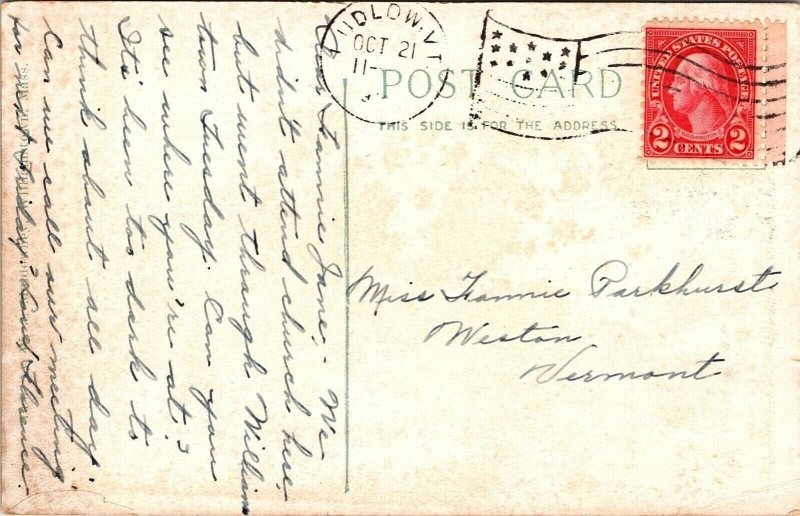 LUDLOW, VT
OCT 21
11-
POST CARD
THIS SIDE IS FOR THE ADDRESS
UNITED STATES POSTAGE
WASHINGTON
2 CENTS 2
Miss Fannie Parkhurst
Weston
Vermont
Dear Fannie Jane; - We
didn't attend church here,
but went through William
town Tuesday. Can you
see where you're at?
It's been too dark to
think about all day
Can we call our meeting
for next Friday? Love, Florence.